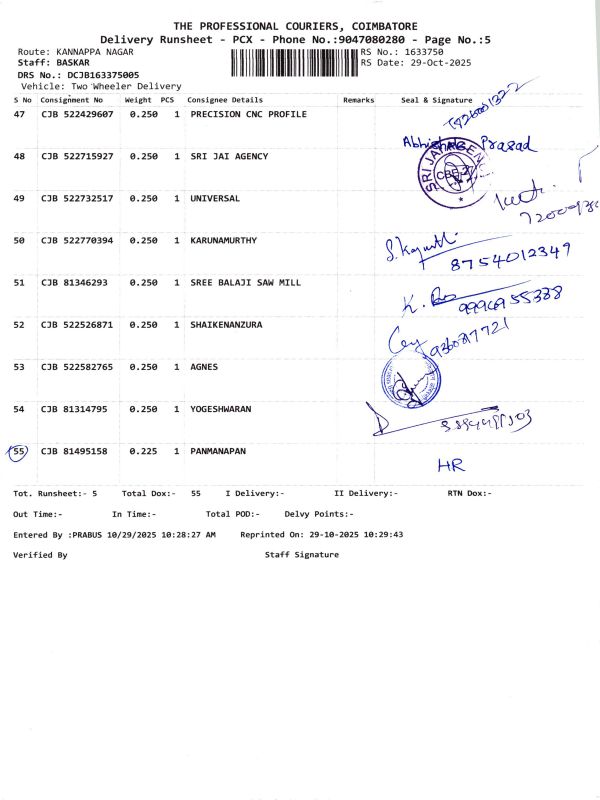 THE PROFESSIONAL COURIERS, COIMBATORE
Delivery Runsheet - PCX - Phone No.:9047080280 - Page No.:5
Route: KANNAPPA NAGAR RS No.: 1633750
Staff: BASKAR RS Date: 29-Oct-2025
DRS No.: DCJB163375005
Vehicle: Two Wheeler Delivery
S No Consignment No Weight PCS Consignee Details Remarks Seal & Signature
47 CJB 522429607 0.250 1 PRECISION CNC PROFILE
Abhishek Prasad
48 CJB 522715927 0.250 1 SRI JAI AGENCY
SRI JAI AGENCY
49 CJB 522732517 0.250 1 UNIVERSAL
50 CJB 522770394 0.250 1 KARUNAMURTHY
8754012349
51 CJB 81346293 0.250 1 SREE BALAJI SAW MILL
52 CJB 522526871 0.250 1 SHAIKENANZURA
53 CJB 522582765 0.250 1 AGNES
54 CJB 81314795 0.250 1 YOGESHWARAN
55 CJB 81495158 0.225 1 PANMANAPAN
HR
Tot. Runsheet:- 5 Total Dox:- 55 I Delivery:- II Delivery:- RTN Dox:-
Out Time:- In Time:- Total POD:- Delvy Points:-
Entered By :PRABUS 10/29/2025 10:28:27 AM Reprinted On: 29-10-2025 10:29:43
Verified By Staff Signature